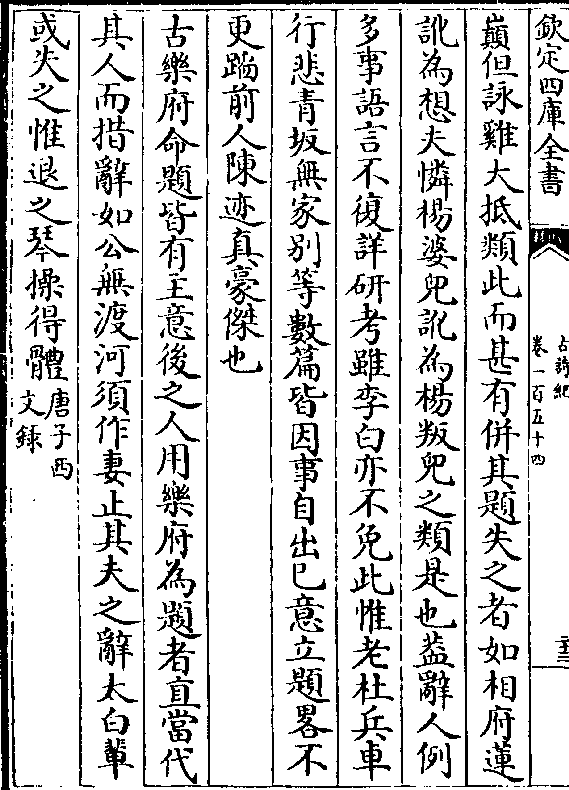 欽定四庫全書
古詩紀
卷一百五十四
巔但詠雞大抵類此而甚有併其題失之者如相府蓮
訛為想夫憐楊婆兒訛為楊叛兒之類是也葢辭人例
多事語言不復詳研考雖李白亦不免此惟老杜兵車
行悲青坂無家别等數篇皆因事自出已意立題畧不
更蹈前人陳迹真豪傑也
古樂府命題皆有主意後之人用樂府為題者直當代
其人而措辭如公無渡河須作妻止其夫之辭太白輩
或失之惟退之琴操得體唐子西
文録